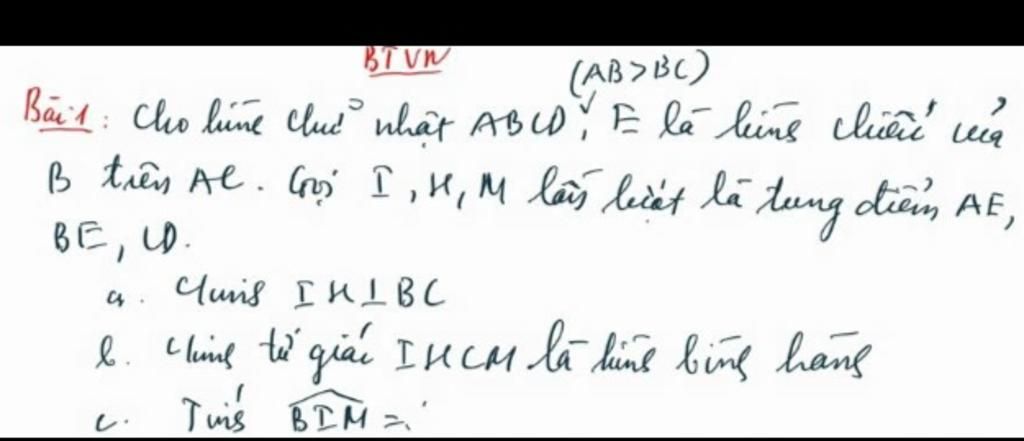 BTVN
(AB>BC)
Bài 1: Cho hình chữ nhật ABCD, E là hình chiếu của
B trên AC. Gọi I, H, M lần lượt là trung điểm AE,
BE, CD.
a. Chứng IH⊥BC
b. Chứng tứ giác IHCM là hình bình hành
c. Tính \widehat{BIM} = ?